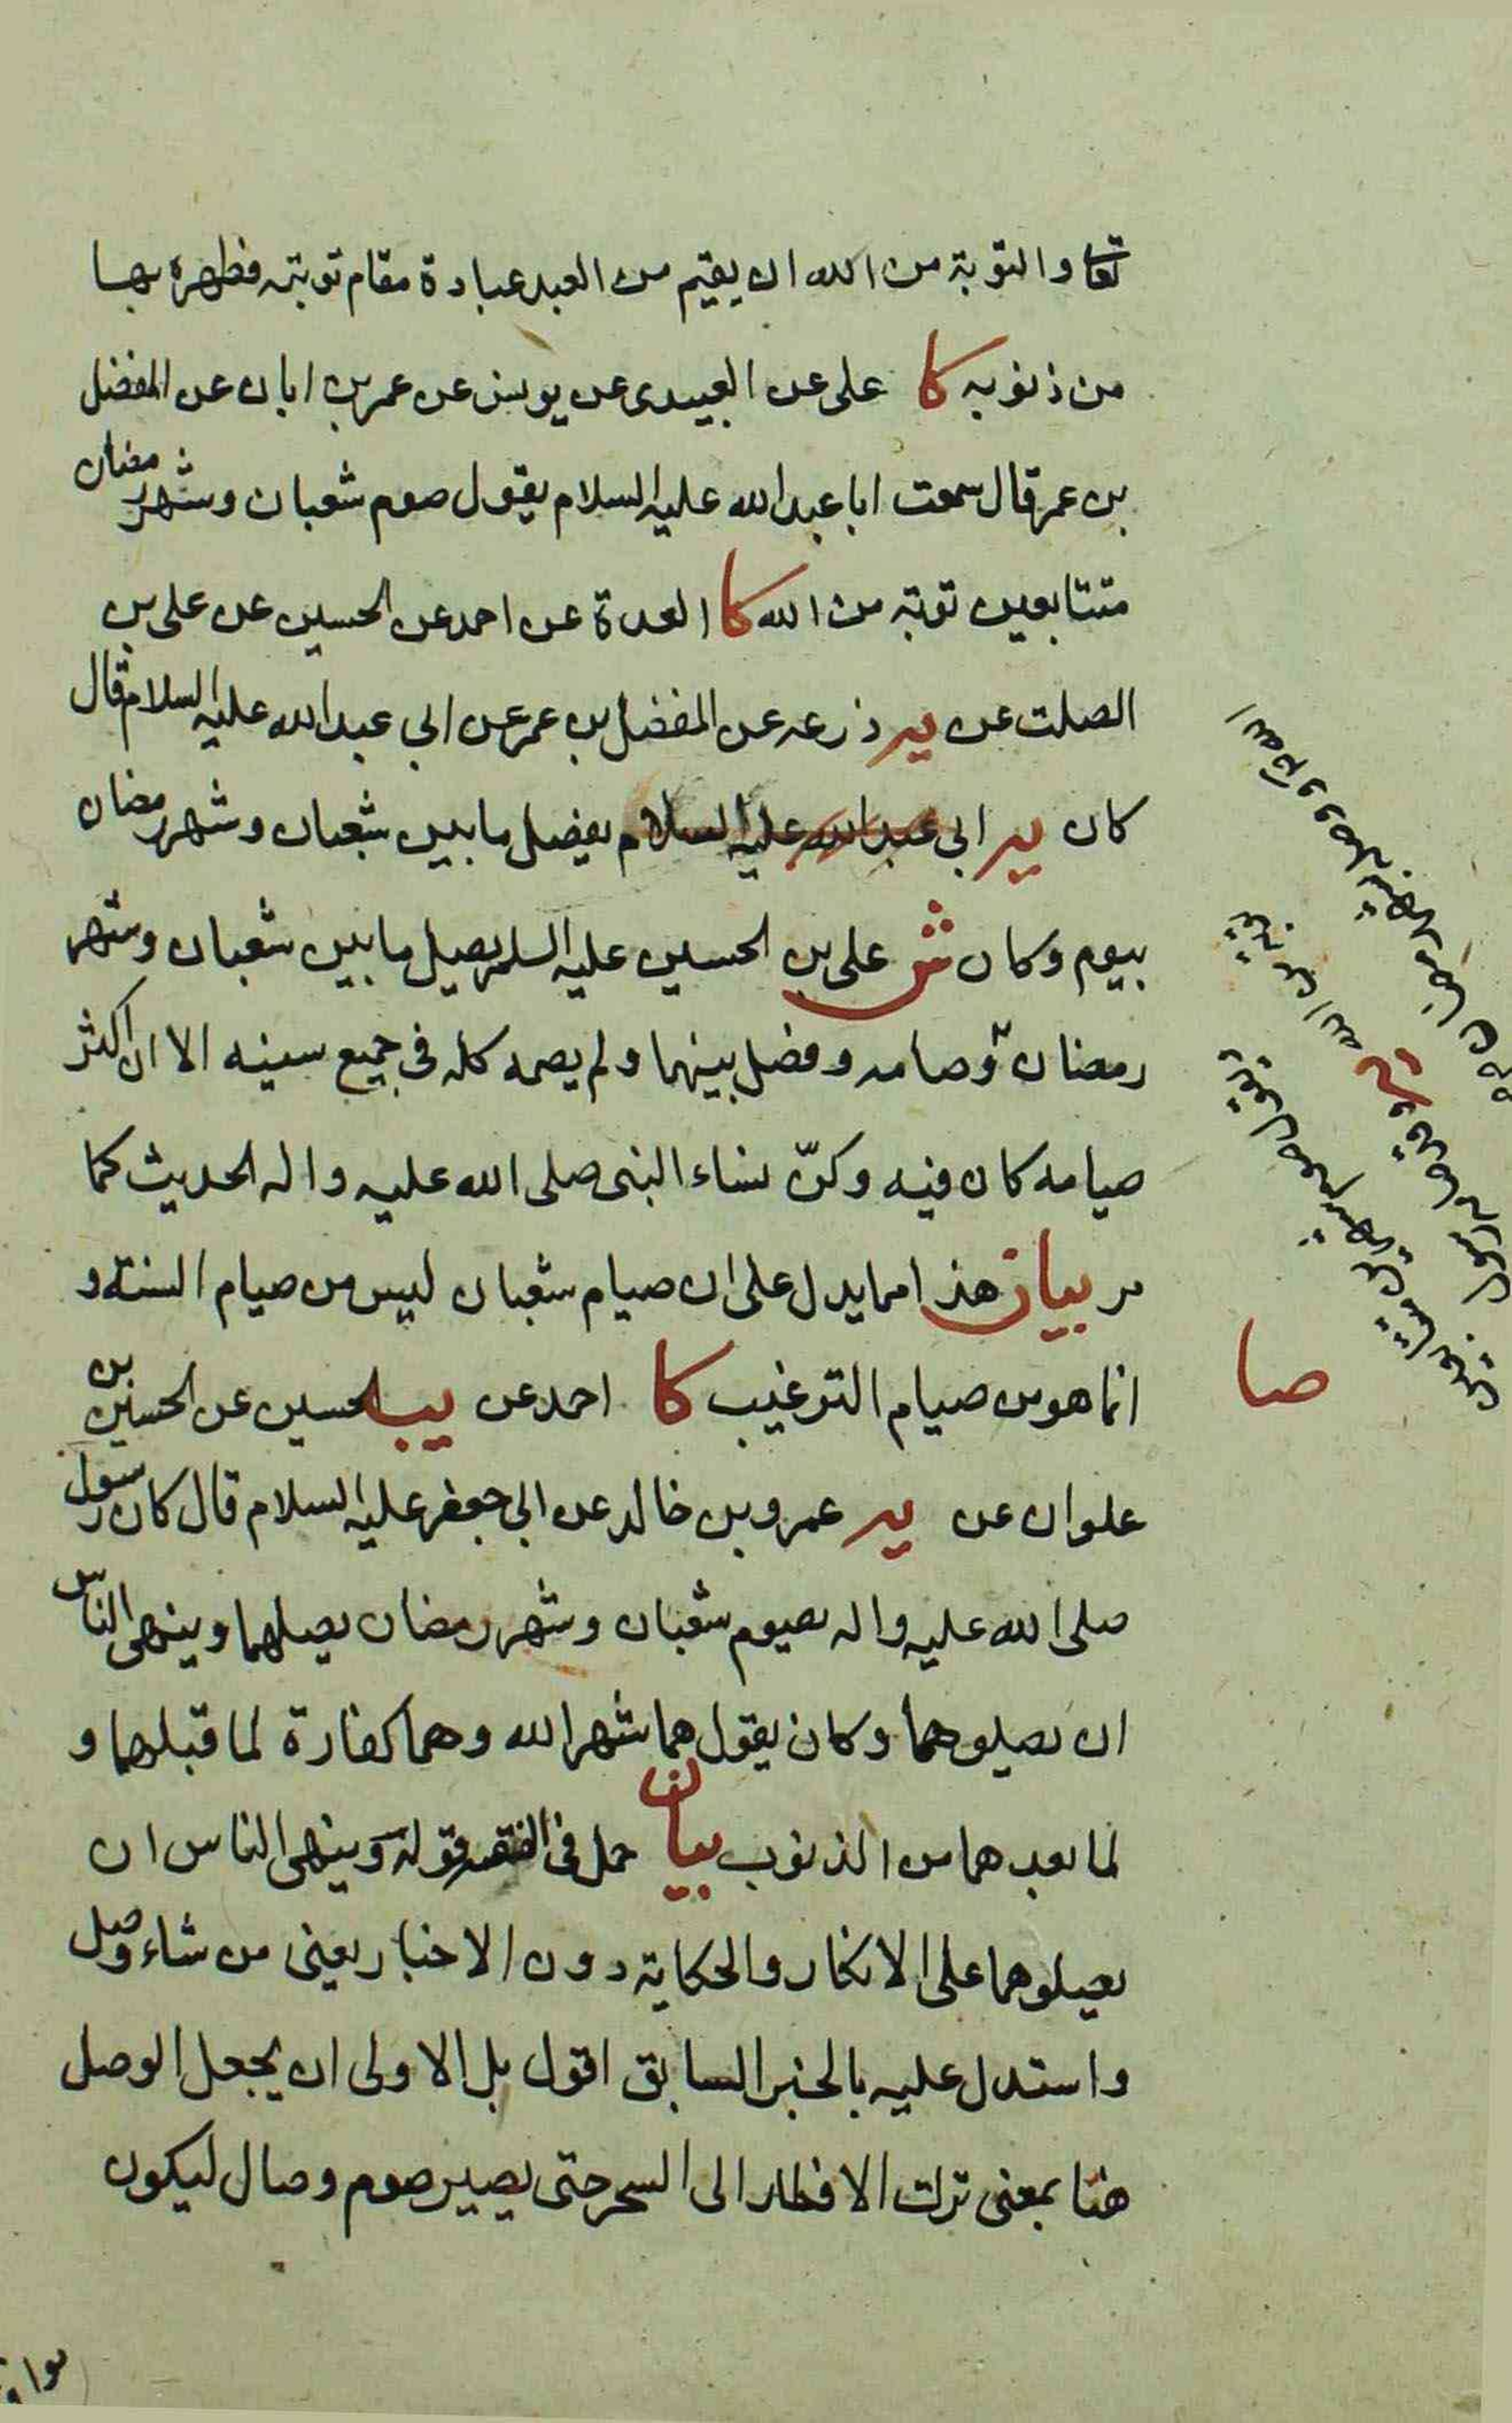 تعا والتوبة من الله ان يقيم من العبد عبادة مقام توبته فطهره بها
من ذنوبه كا على عن العبيدى عن يونس عن عمر بن ابان عن المفضل
بن عمر قال سمعت ابا عبد الله عليه السلام يقول صوم شعبان وشهر رمضان
متتابعين توبة من الله كا العدة عن احمد عن الحسين عن على بن
الصلت عن يه زرعه عن المفضل بن عمر عن ابى عبد الله عليه السلام قال
كان يه ابى عبد الله عليه السلام يفصل ما بين شعبان وشهر رمضان
بيوم وكان ش على بن الحسين عليه السلم يصل ما بين شعبان وشهر
رمضان وصامه وفصل بينهما ولم يصمه كله فى جميع سنيه الا ان اكثر
صيامه كان فيه وكنّ نساء النبى صلى الله عليه واله الحديث كما
مر بيان هذا مما يدل على ان صيام شعبان ليس من صيام السنة و
انما هو من صيام الترغيب كا احمد عن يب الحسين عن الحسين بن
علوان عن يه عمرو بن خالد عن ابى جعفر عليه السلام قال كان رسول
صلى الله عليه واله يصوم شعبان وشهر رمضان يصلهما وينهى الناس
ان يصلوهما وكان يقول هما شهر الله وهما كفارة لما قبلهما و
لما بعدهما من الذنوب بيان حمل فى الفقيه قوله وينهى الناس ان
يصلوهما على الانكار والحكاية دون الاخبار يعنى من شاء وصل
واستدل عليه بالخبر السابق اقول بل الاولى ان يجعل الوصل
هنا بمعنى ترك الافطار الى السحر حتى يصير صوم وصال ليكون
صا